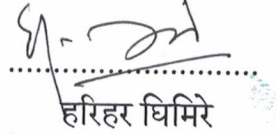 हरिहर घिमिरे